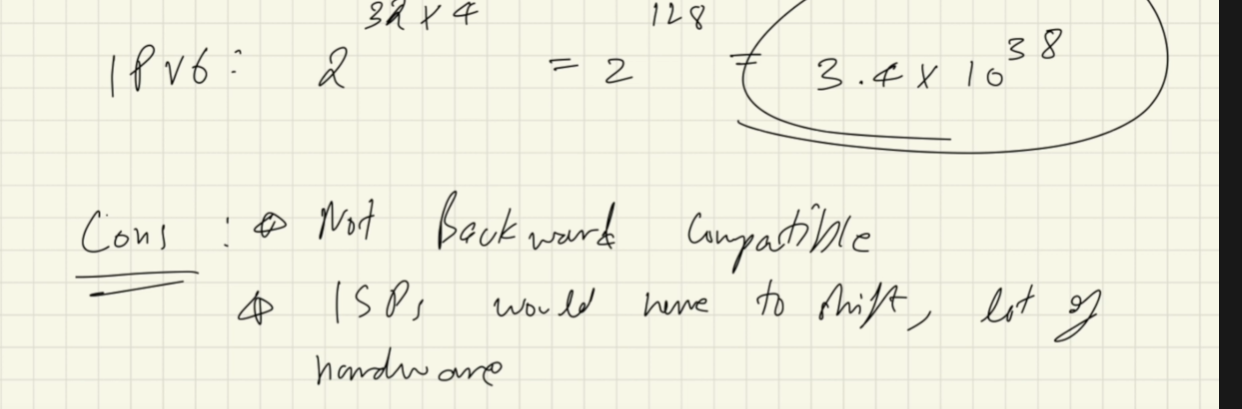 IPv6: 2^32x4 = 2^128 = 3.4 x 10^38
Cons : Not Backward Compatible
ISPs would have to shift, lot of
hardware